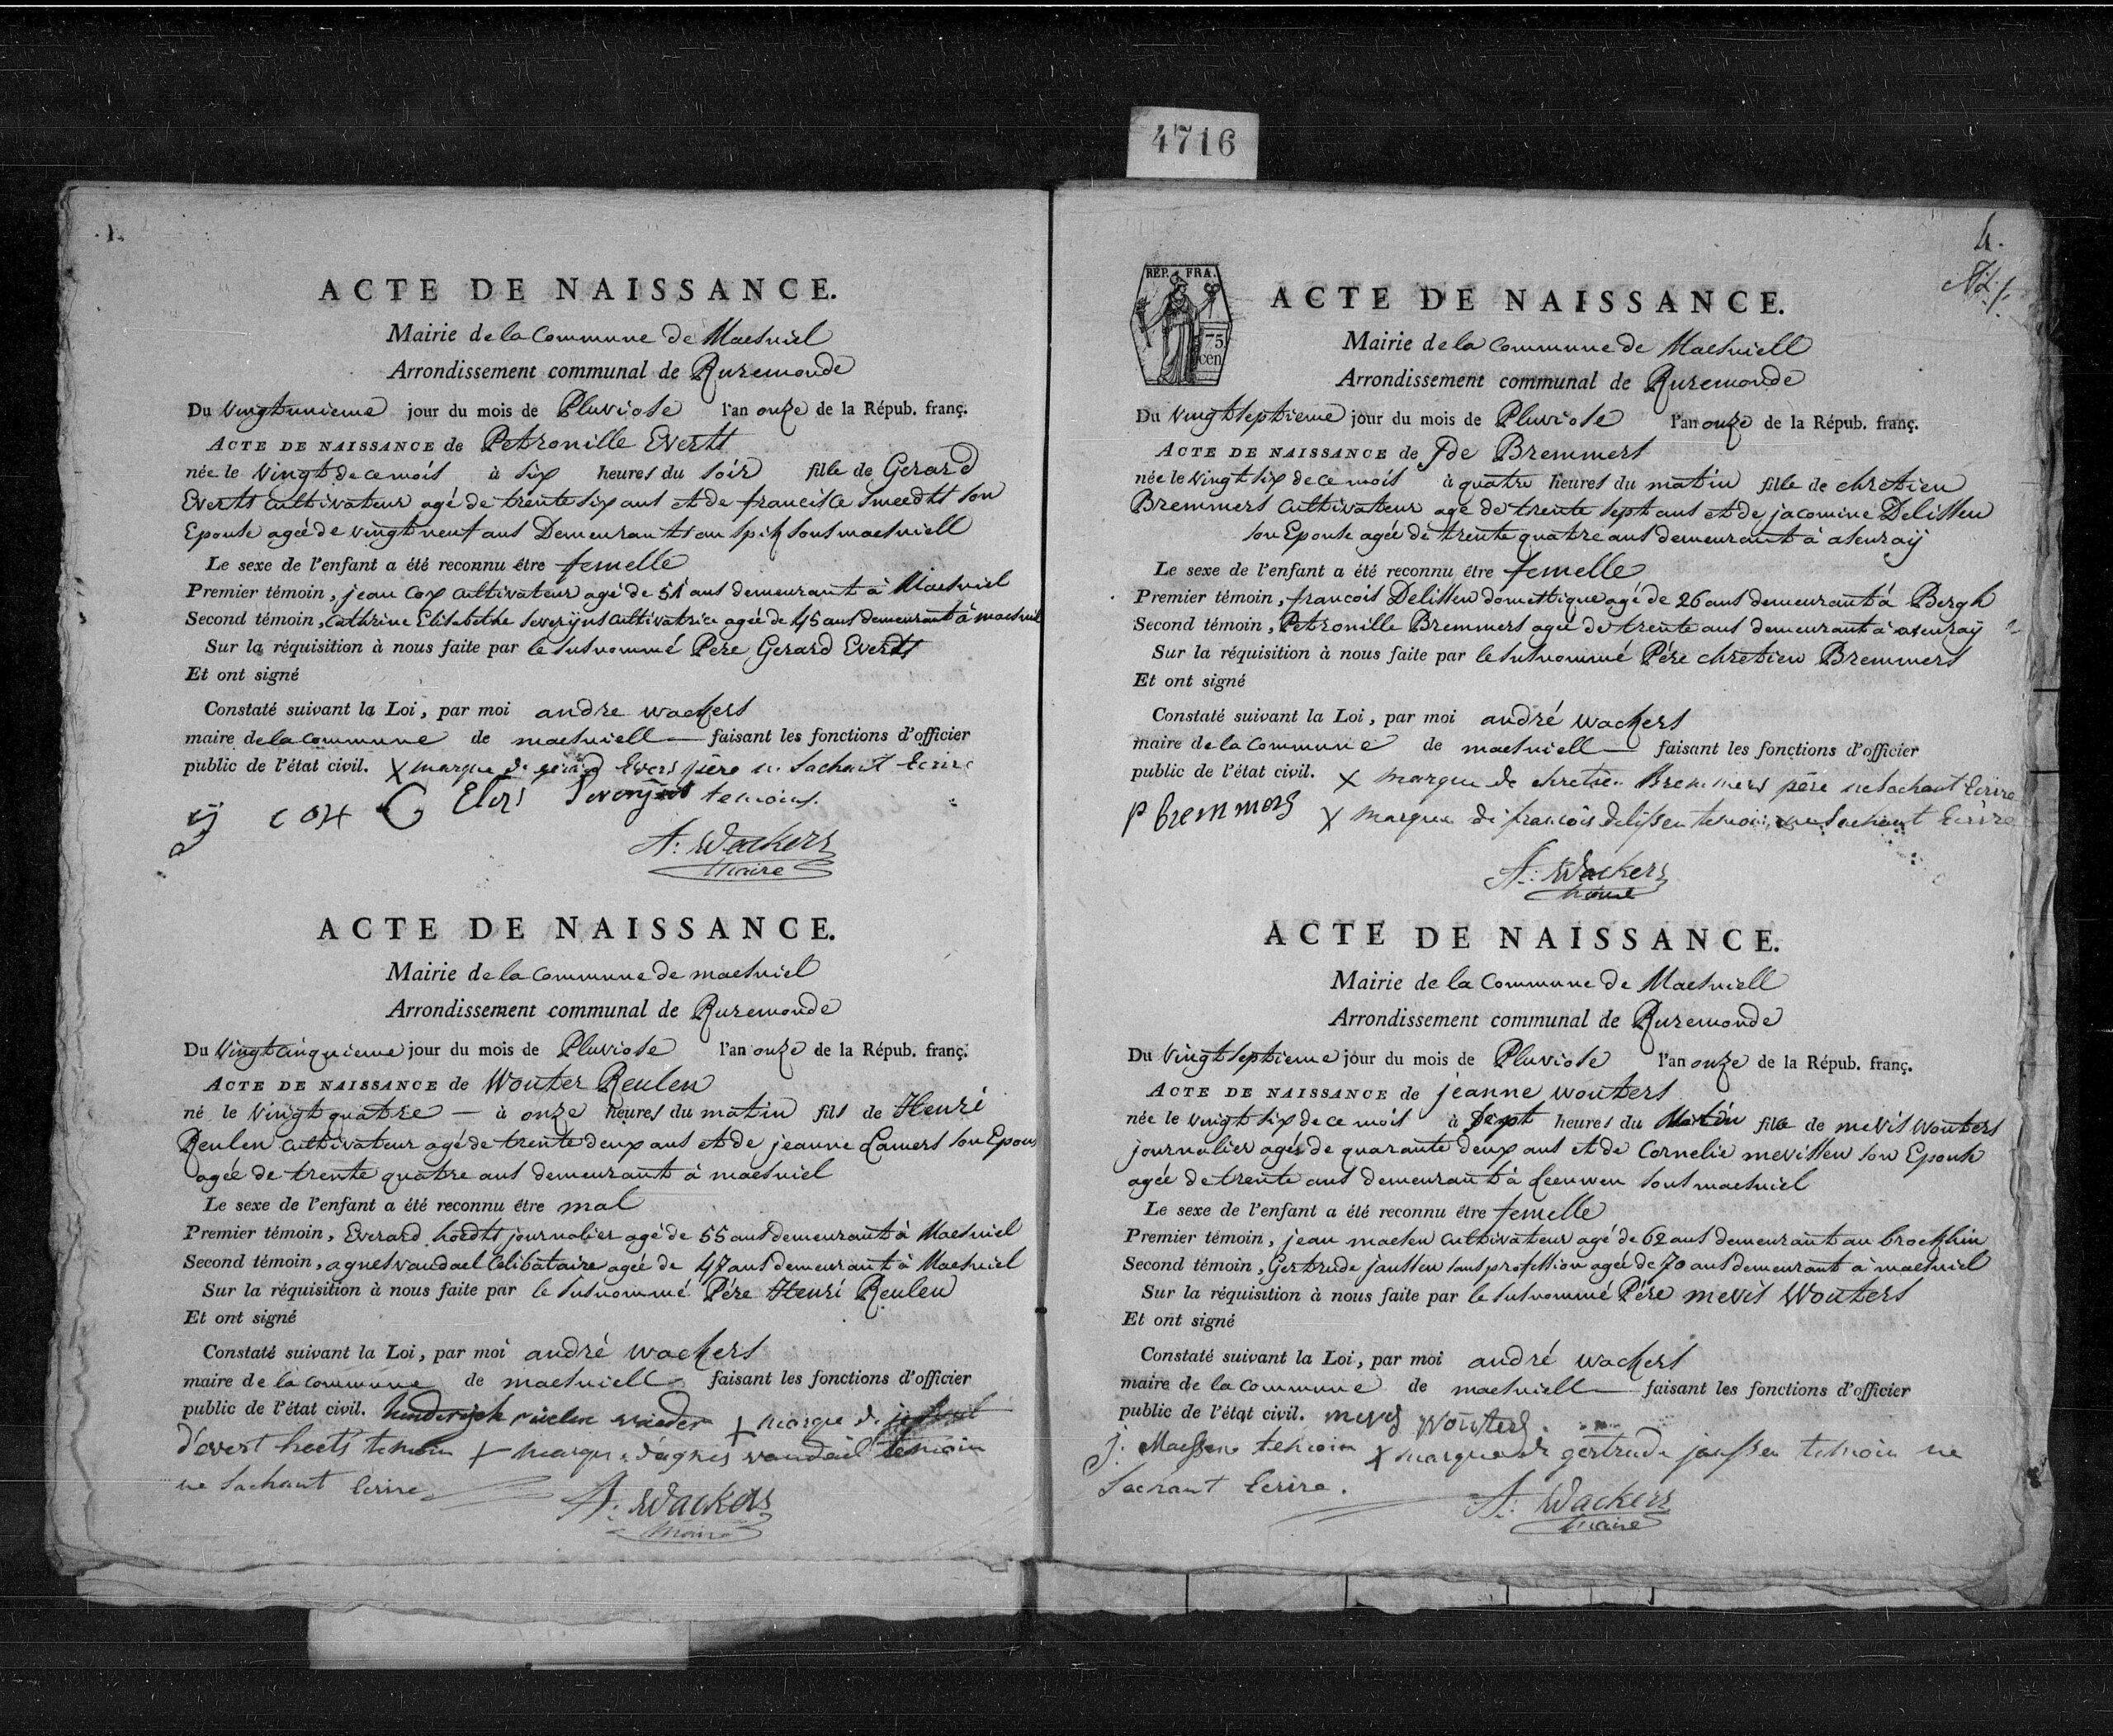 4716
ACTE DE NAISSANCE.
Mairie de la Commune de Maesniel
Arrondissement communal de Ruremonde
Du Vingtunieme jour du mois de Pluviose l'an onze de la Répub. franç.
ACTE DE NAISSANCE de Petronille Everts
née le Vingt de ce mois à six heures du soir fille de Gerard
Everts Cultivateur agé de trente six ans et de francisce Smeedts son
Epouse agée de vingt neuf ans Demeurants au Spik sous maesniell
Le sexe de l'enfant a été reconnu être femelle
Premier témoin, jean Cox Cultivateur agé de 51 ans demeurant à Maesniel
Second témoin, Cathrine Elisabethe Severijns Cultivatrice agée de 45 ans demeurant à maesniel
Sur la réquisition à nous faite par le susnommé Pere Gerard Everts
Et ont signé
Constaté suivant la Loi, par moi andre wackers
maire de la Commune de maesniell faisant les fonctions d'officier
public de l'état civil. X marque de gerard Evers père ne Sachant Ecrire
cox C temoins.
A: Wackers
Maire
ACTE DE NAISSANCE.
Mairie de la Commune de maesniel
Arrondissement communal de Ruremonde
Du Vingt Cinquieme jour du mois de Pluviose l'an onze de la Répub. franç.
ACTE DE NAISSANCE de Wouter Reulen
né le Vingt quatre — à onze heures du matin fils de Henri
Reulen Cultivateur agé de trente deux ans et de jeanne Lamers son Epouse
agée de trente quatre ans demeurant à maesniel
Le sexe de l'enfant a été reconnu être mal
Premier témoin, Everard hoedts journalier agé de 55 ans demeurant à Maesniel
Second témoin, agnes vandael Celibataire agée de 47 ans demeurant à Maesniel
Sur la réquisition à nous faite par le susnommé Père Henri Reulen
Et ont signé
Constaté suivant la Loi, par moi andré wackers
maire de la Commune de maesniell faisant les fonctions d'officier
public de l'état civil. + marque de
d'evert heets temoin + marque d'agnes vandail temoin
ne Sachant Ecrire
A: Wackers
Maire
4.
REP. FRA.
75
cen
ACTE DE NAISSANCE.
Mairie de la Commune de Maesniell
Arrondissement communal de Ruremonde
Du Vingt septieme jour du mois de Pluviose l'an onze de la Répub. franç.
ACTE DE NAISSANCE de Jde Bremmers
née le vingt six de ce mois à quatre heures du matin fille de chretien
Bremmers Cultivateur agé de trente sept ans et de jacomine Delissen
son Epouse agée de trente quatre ans demeurant à asenraÿ
Le sexe de l'enfant a été reconnu être femelle
Premier témoin, francois Delissen domestique agé de 26 ans demeurant à Bergh
Second témoin, Petronille Bremmers agée de trente ans demeurant à asenraÿ
Sur la réquisition à nous faite par le susnommé Père chretien Bremmers
Et ont signé
Constaté suivant la Loi, par moi andré wackers
maire de la Commune de maesniell faisant les fonctions d'officier
public de l'état civil. X marque de chretien Bremmers père ne Sachant Ecrire
P bremmers X marque de francois delissen temoin ne Sachant Ecrire
A: Wackers
Maire
ACTE DE NAISSANCE.
Mairie de la Commune de Maesniell
Arrondissement communal de Ruremonde
Du Vingt septieme jour du mois de Pluviose l'an onze de la Répub. franç.
ACTE DE NAISSANCE de jeanne wouters
née le vingt six de ce mois à sept heures du Matin fille de mevis Wouters
journalier agés de quarante deux ans et de Cornelie mevissen son Epouse
agée de trente ans demeurant à Leeuwen sous maesniel
Le sexe de l'enfant a été reconnu être femelle
Premier témoin, jean maesen Cultivateur agé de 62 ans demeurant au brockhin
Second témoin, Gertrude janssen sans profession agée de 70 ans demeurant à maesniel
Sur la réquisition à nous faite par le susnommé Père mevis Wouters
Et ont signé
Constaté suivant la Loi, par moi andré wackers
maire de la Commune de maesniell faisant les fonctions d'officier
public de l'état civil. mevis Wouters.
J. Maessen temoin X marque de gertrude janssen temoin ne
Sachant Ecrire.
A: Wackers
Maire